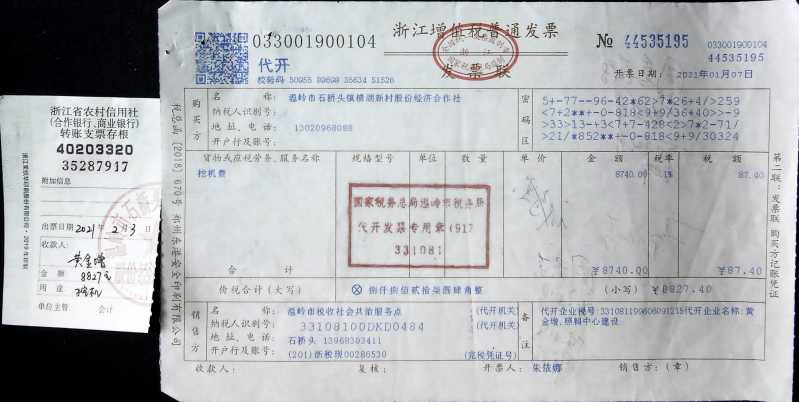 浙江省农村信用社
(合作银行、商业银行)
转账支票存根
40203320
35287917
附加信息
出票日期 2021 年 2 月 3 日
收款人:
黄金增
金 额
8827元
用 途
挖机
单位主管 会计
033001900104
浙江增值税普通发票
发 票 联
代开
校验码 50955 89698 35634 51526
№ 44535195
033001900104
44535195
开票日期: 2021年01月07日
购买方
名 称: 温岭市石桥头镇横湖新村股份经济合作社
纳税人识别号:
地址、电话: 13020968088
开户行及账号:
密码区
5+-77--96-42*62>7*26+4/>259
<7+2**+-0-818<9+9/36*40>>-9
>33>13-+3<7+7-428<2>7*2-71/
>21/*852**+-0-818<9+9/30324
货物或应税劳务、服务名称 规格型号 单位 数 量 单 价 金 额 税率 税 额
挖机费 8740.00 1% 87.40
国家税务总局温岭市税务局
代开发票专用章(91)
331081
合 计 ¥8740.00 ¥87.40
价税合计(大写) ⊗ 捌仟捌佰贰拾柒圆肆角整 (小写) ¥8827.40
销售方
名 称: 温岭市税收社会共治服务点 (代开机关)
纳税人识别号: 33108100DKD0484 (代开机关)
地址、电话: 石桥头 13968393411
开户行及账号: (201)浙税现00286530 (完税凭证号)
备注
代开企业税号:331081199606091215代开企业名称:黄
金增,照料中心建设
收款人: 复核: 开票人: 朱依娜 销售方:(章)
第二联:发票联 购买方记账凭证
税总函〔2018〕679号